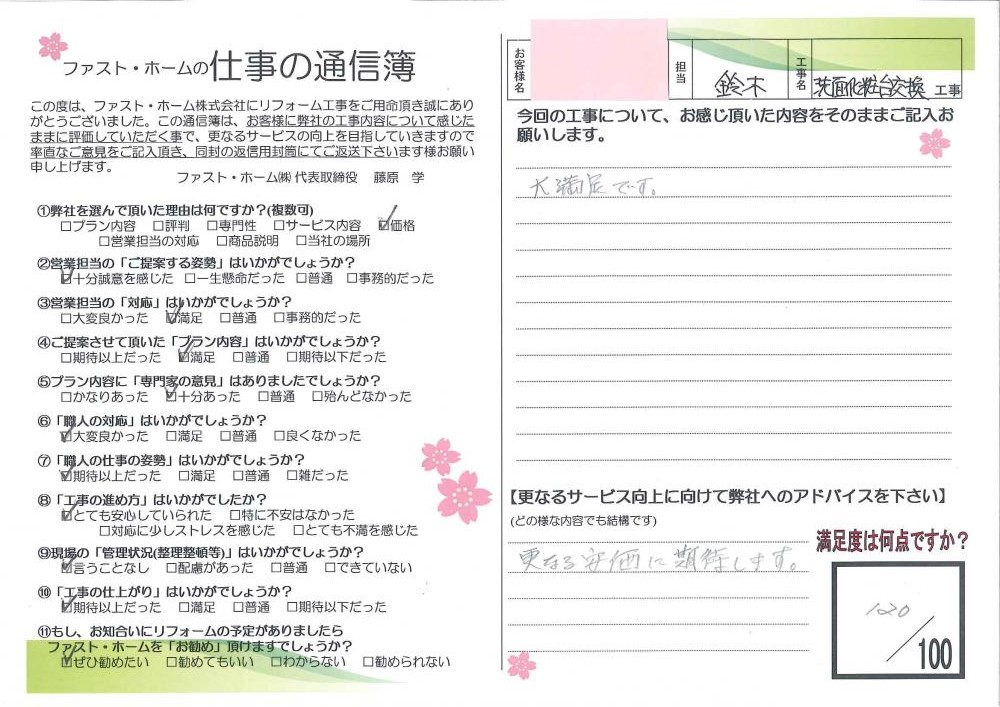 ファスト・ホームの仕事の通信簿
この度は、ファスト・ホーム株式会社にリフォーム工事をご用命頂き誠にあり
がとうございました。この通信簿は、お客様に弊社の工事内容について感じた
ままに評価していただく事で、更なるサービスの向上を目指していきますので
率直なご意見をご記入頂き、同封の返信用封筒にてご返送下さいます様お願い
申し上げます。
ファスト・ホーム㈱ 代表取締役 藤原 学
①弊社を選んで頂いた理由は何ですか?(複数可)
□プラン内容 □評判 □専門性 □サービス内容 ☑価格
□営業担当の対応 □商品説明 □当社の場所
②営業担当の「ご提案する姿勢」はいかがでしょうか?
☑十分誠意を感じた □一生懸命だった □普通 □事務的だった
③営業担当の「対応」はいかがでしょうか?
□大変良かった ☑満足 □普通 □事務的だった
④ご提案させて頂いた「プラン内容」はいかがでしょうか?
□期待以上だった ☑満足 □普通 □期待以下だった
⑤プラン内容に「専門家の意見」はありましたでしょうか?
□かなりあった ☑十分あった □普通 □殆んどなかった
⑥「職人の対応」はいかがでしょうか?
☑大変良かった □満足 □普通 □良くなかった
⑦「職人の仕事の姿勢」はいかがでしょうか?
☑期待以上だった □満足 □普通 □雑だった
⑧「工事の進め方」はいかがでしたか?
☑とても安心していられた □特に不安はなかった
□対応に少しストレスを感じた □とても不満を感じた
⑨現場の「管理状況(整理整頓等)」はいかがでしょうか?
☑言うことなし □配慮があった □普通 □できていない
⑩「工事の仕上がり」はいかがでしょうか?
☑期待以上だった □満足 □普通 □期待以下だった
⑪もし、お知合いにリフォームの予定がありましたら
ファスト・ホームを「お勧め」頂けますでしょうか?
☑ぜひ勧めたい □勧めてもいい □わからない □勧められない
お客様名 担当 鈴木 工事名 洗面化粧台交換 工事
今回の工事について、お感じ頂いた内容をそのままご記入お
願いします。
大満足です。
【更なるサービス向上に向けて弊社へのアドバイスを下さい】
(どの様な内容でも結構です)
満足度は何点ですか?
更なる安価に期待します。
120/100